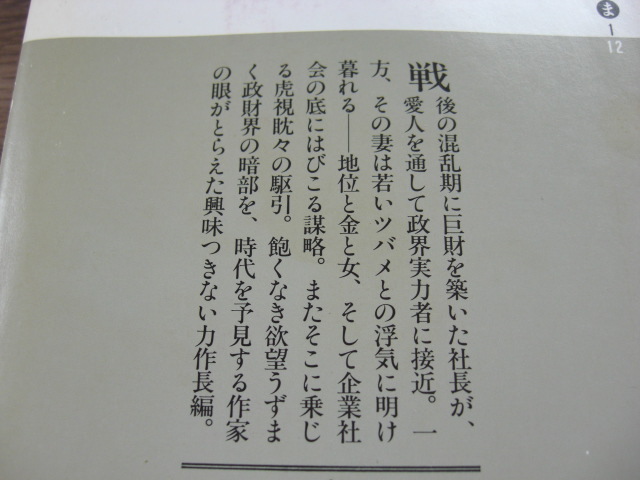 戦後の混乱期に巨財を築いた社長が、
愛人を通して政界実力者に接近。一
方、その妻は若いツバメとの浮気に明け
暮れる──地位と金と女、そして企業社
会の底にはびこる謀略。またそこに乗じ
る虎視眈々の駆引。飽くなき欲望うずま
く政財界の暗部を、時代を予見する作家
の眼がとらえた興味つきない力作長編。
ま
1
12